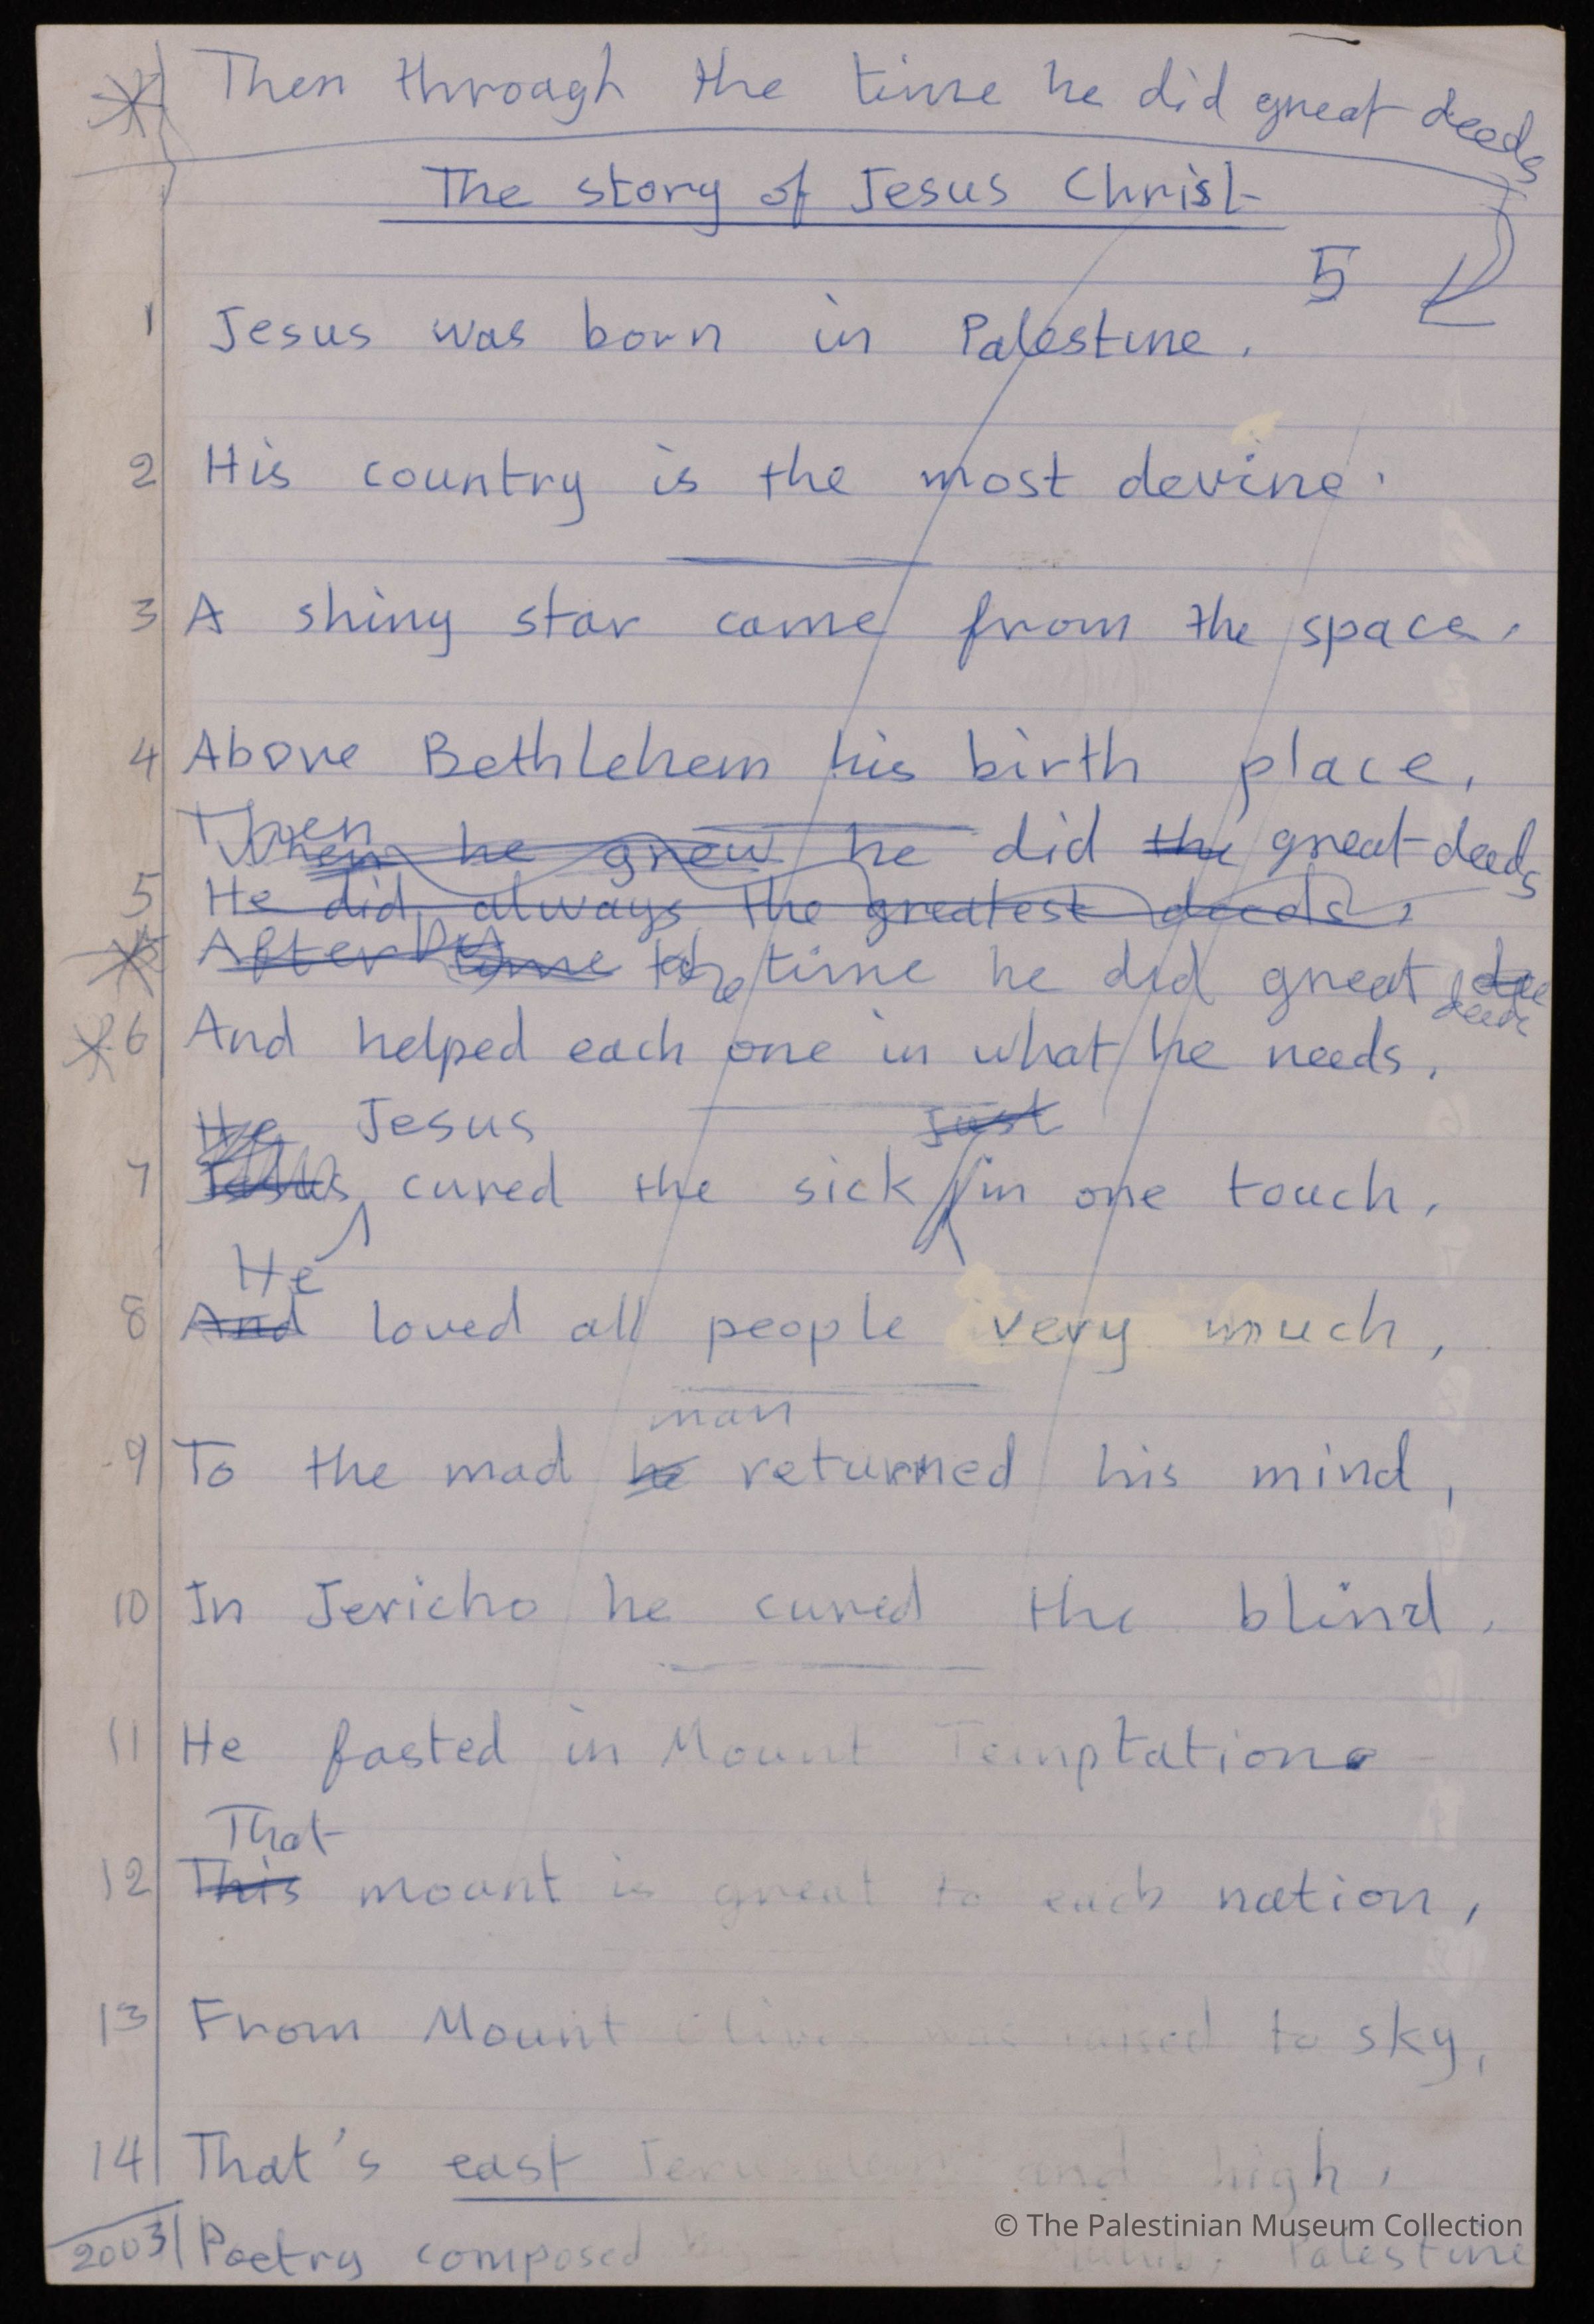 Then through the time he did great deeds
The story of Jesus Christ
5
1 Jesus was born in Palestine.
2 His country is the most devine.
3 A shiny star came from the space.
4 Above Bethlehem his birth place,
Then When he grew he did the great deeds
5 He did always the greatest deeds,
After by time the time he did great deeds
6 And helped each one in what he needs.
He Jesus Just
7 Jesus cured the sick in one touch,
He
8 And loved all people very much,
man
9 To the mad he returned his mind,
10 In Jericho he cured the blind.
11 He fasted in Mount Temptation
That
12 This mount is great to each nation,
13 From Mount Olives was raised to sky,
14 That's east Jerusalem and high,
© The Palestinian Museum Collection
2003 Poetry composed Palestine